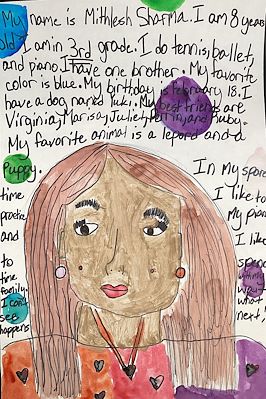 My name is Mithlesh Sharma. I am 8 years
old. I am in 3rd grade. I do tennis, ballet,
and piano. I have one brother. My favorite
color is blue. My birthday is february 18. I
have a dog named Yuki. My best friends are
Virginia, Marisa, Juliet, Perrin, and Ruby.
My favorite animal is a lepord and a
Puppy. In my spare
time I like to
practice my piano
and I like
to spend
time with my
family. I can't wait
see what
happens next!